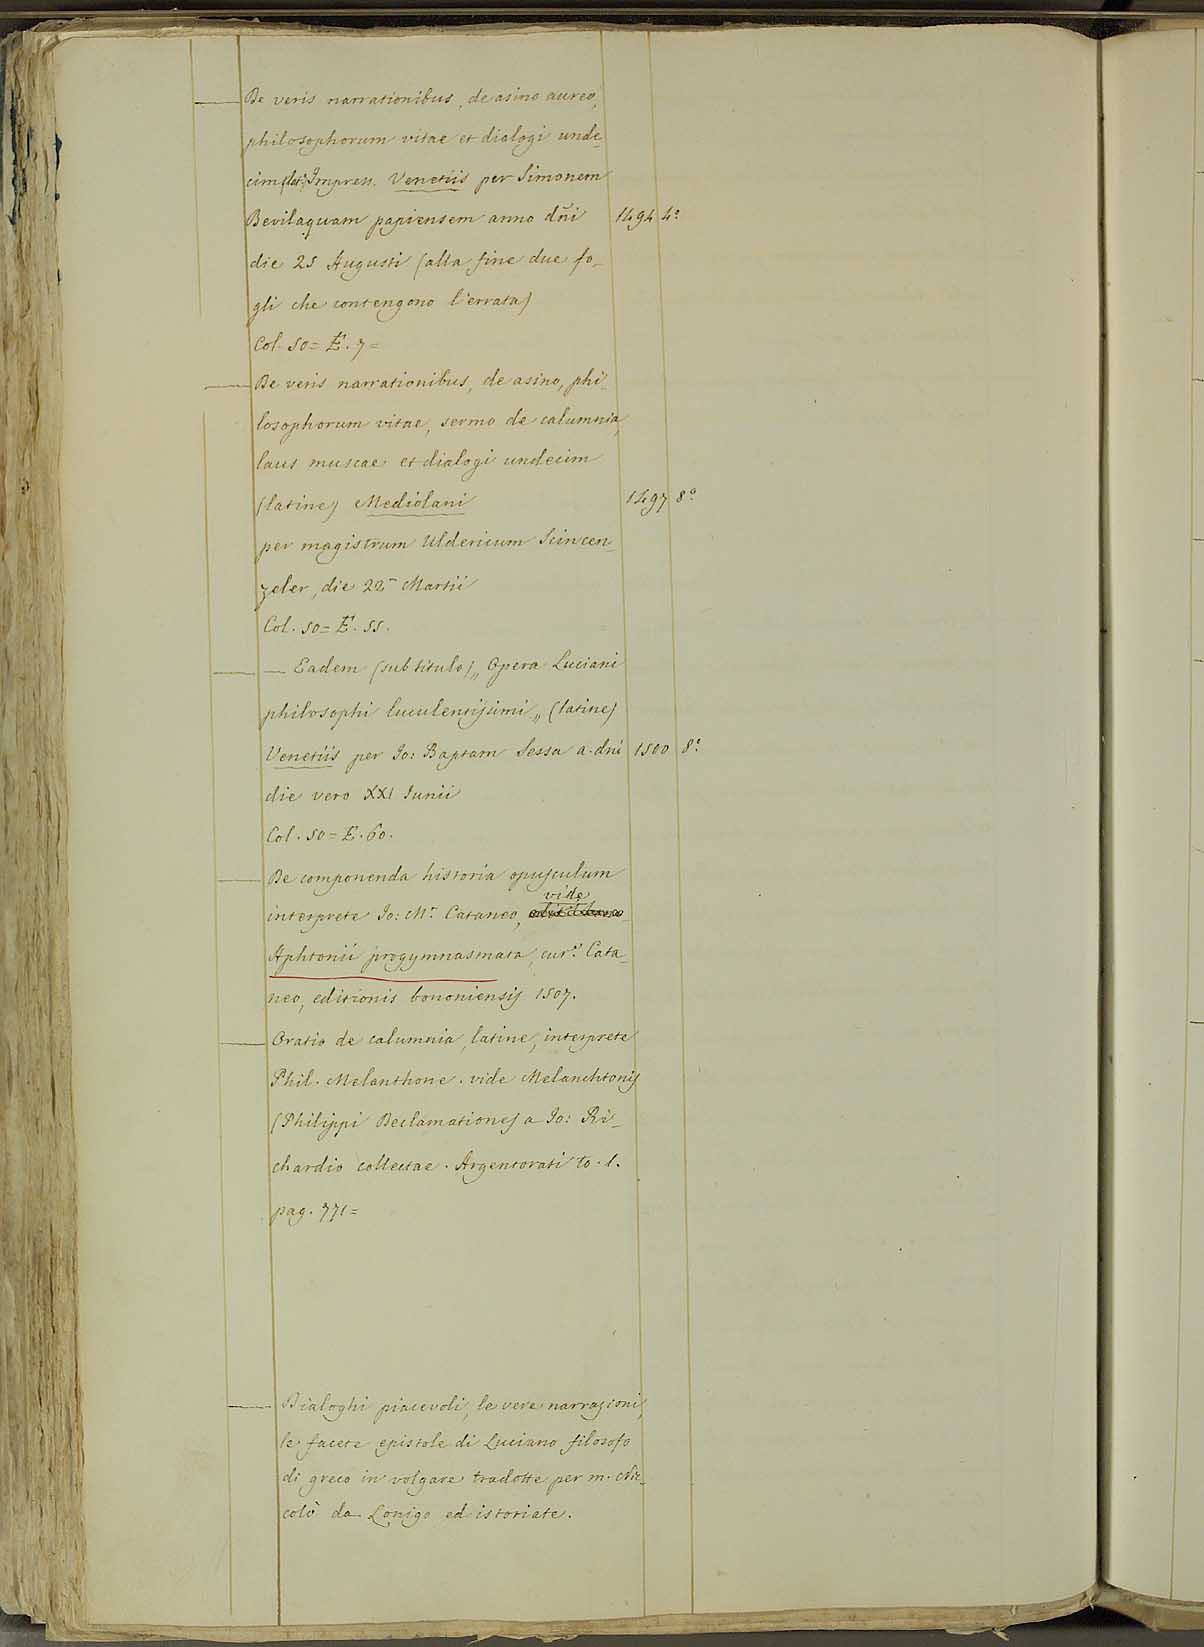 — De veris narrationibus, de asino aureo,
philosophorum vitae et dialogi unde_
cim (lat:) Impress. Venetiis per Simonem
Bevilaquam papiensem anno dñi 1494 4º
die 25 Augusti (alla fine due fo_
gli che contengono l'errata)
Col. 50 = E. 7 =
— De veris narrationibus, de asino, phi_
losophorum vitae, sermo de calumnia,
laus muscae et dialogi undecim
(latine) Mediolani 1497 8º
per magistrum Uldericum Scincen_
zeler, die 22 Martii
Col. 50 = E. 55.
— — Eadem (sub titulo) „ Opera Luciani
philosophi luculentissimi „ (latine)
Venetiis per Jo: Baptam Sessa a. dni 1500 8º
die vero XXI Junii
Col. 50 = E. 60.
— De componenda historia opusculum
vide
interprete Jo: Mª Cataneo,
Aphtonii progymnasmata, curª Cata_
neo, editionis bononiensis 1507.
— Oratio de calumnia, latine, interprete
Phil. Melanthone. vide Melanchtonis
(Philippi Declamationes a Jo: Ri_
chardio collectae. Argentorati to. 1.
pag. 771 =
— Dialoghi piacevoli, le vere narrazioni,
le facete epistole di Luciano filosofo
di greco in volgare tradotte per m. Nic_
colò da Lonigo ed istoriate.